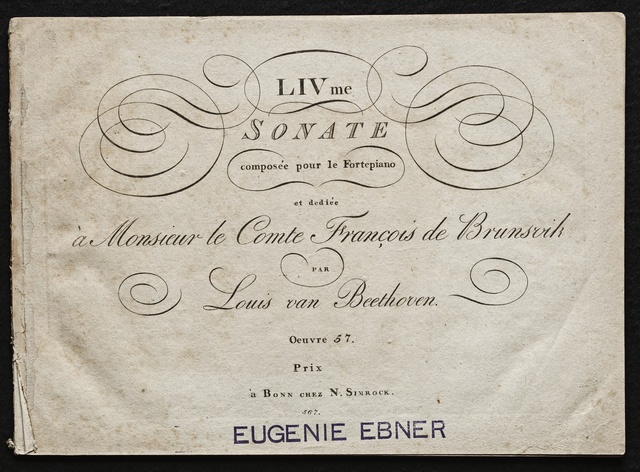 LIVme
SONATE
composée pour le Fortepiano
et dediée
à Monsieur le Comte François de Brunsvik
PAR
Louis van Beethoven.
Oeuvre 57.
Prix
à BONN CHEZ N. SIMROCK.
507.
EUGENIE EBNER